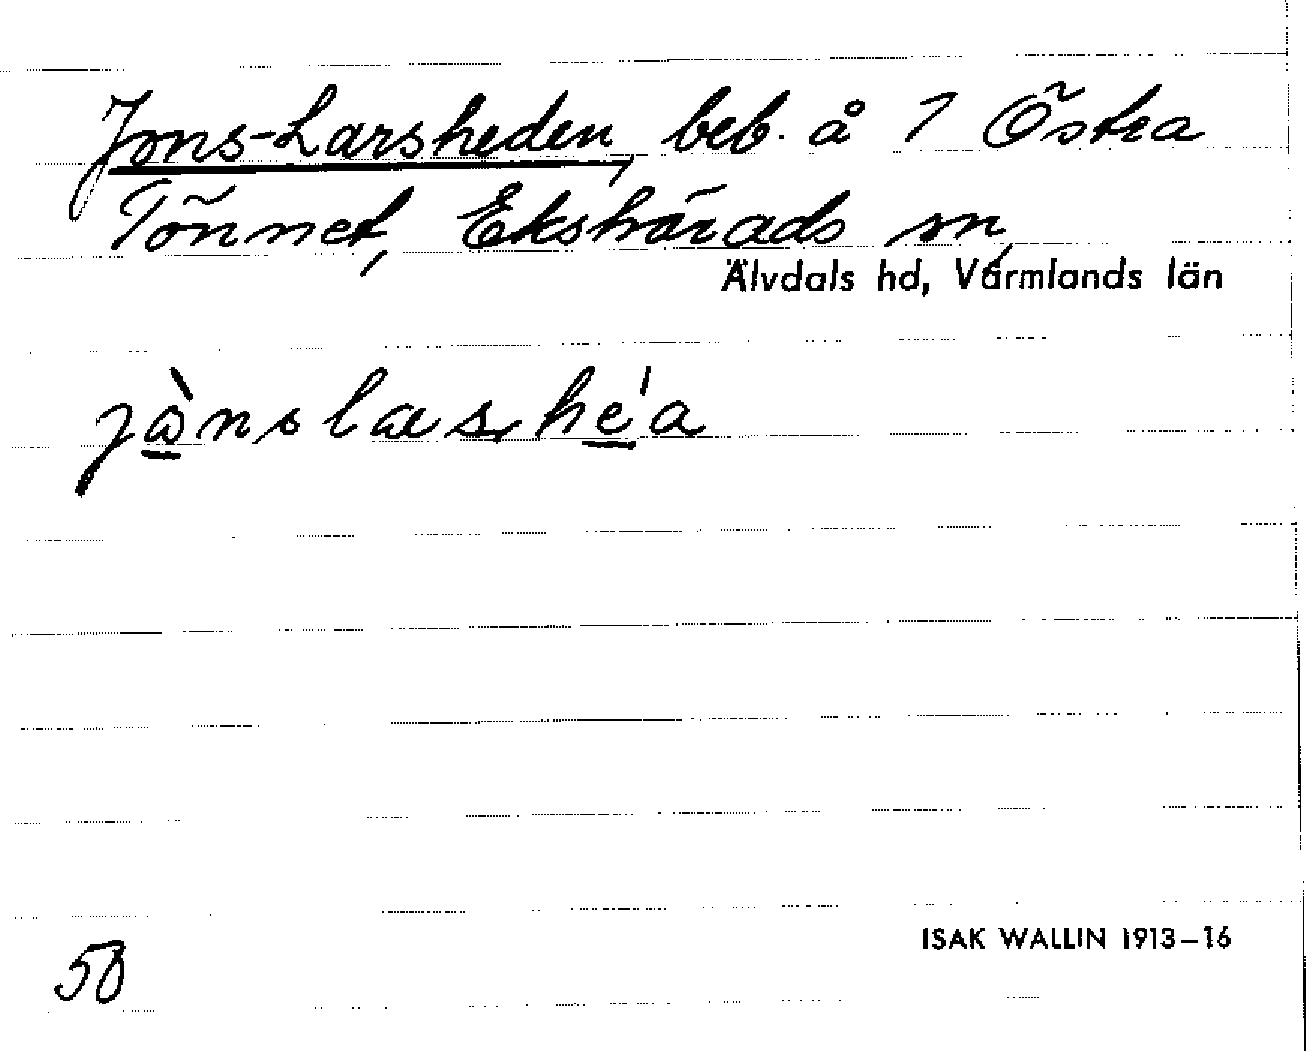 Jons-Larsheden, beb. å 1 Östra
Tönnet, Ekshärads sn,
Älvdals hd, Värmlands län
jànslashéa
58
ISAK WALLIN 1913–16